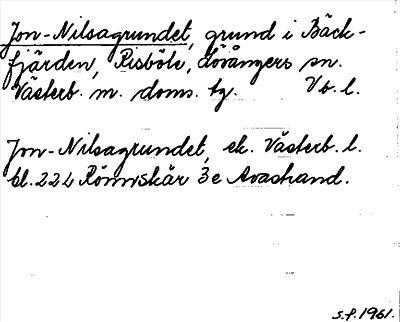 Jon-Nilsagrundet, grund i Bäck-
fjärden, Risböle, Lövångers sn.
Västerb. m. doms. tg. Vb. l.
Jon-Nilsagrundet, ek. Västerb. l.
bl. 22 L Rönnskär 3e Avastrand.
S.f. 1961.